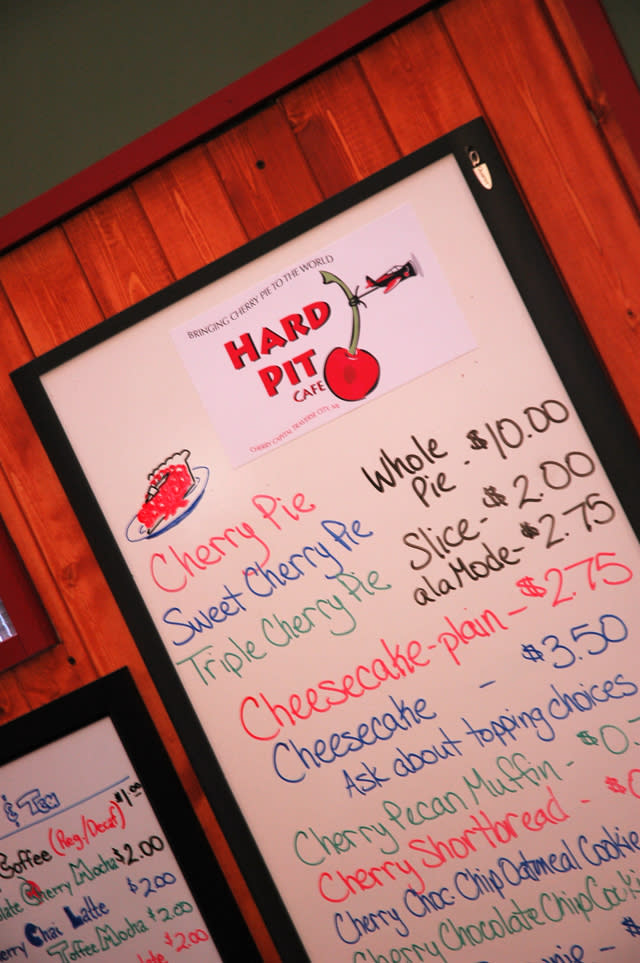 BRINGING CHERRY PIE TO THE WORLD
HARD
PIT
CAFE
CHERRY CAPITAL, TRAVERSE CITY, MI
Cherry Pie
Sweet Cherry Pie
Triple Cherry Pie
Whole
Pie - $10.00
Slice - $2.00
alaMode - $2.75
Cheesecake-plain - $2.75
Cheesecake - $3.50
Ask about topping choices
Cherry Pecan Muffin - $0.
Cherry Shortbread - $
Cherry Choc. Chip Oatmeal Cookie
Cherry Chocolate Chip Cookie
& Tea
Coffee (Reg/Decaf) $1.00
Cherry Mocha $2.00
Chai Latte $2.00
Toffee Mocha $2.00
$2.00